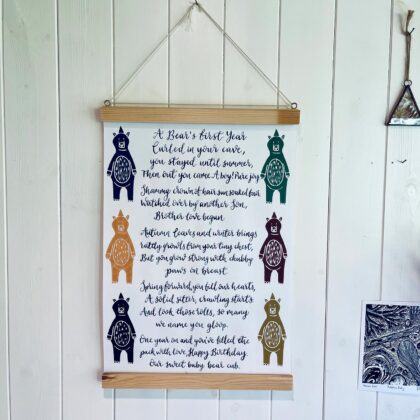 A Bear's First Year
Curled in your cave,
you stayed until summer,
Then out you came. A boy! Pure joy
Shammy crown of hair sun soaked fair
Watched over by another Son,
Brother love begun
Autumn leaves and winter brings
ratty growls from your tiny chest,
But you grow strong with chubby
paws on breast
Spring forward, you fill our hearts,
A solid sitter, crawling starts
And look those rolls, so many
we name you gloop.
One year on and you've filled the
pack with love, Happy Birthday
Our sweet baby bear cub.